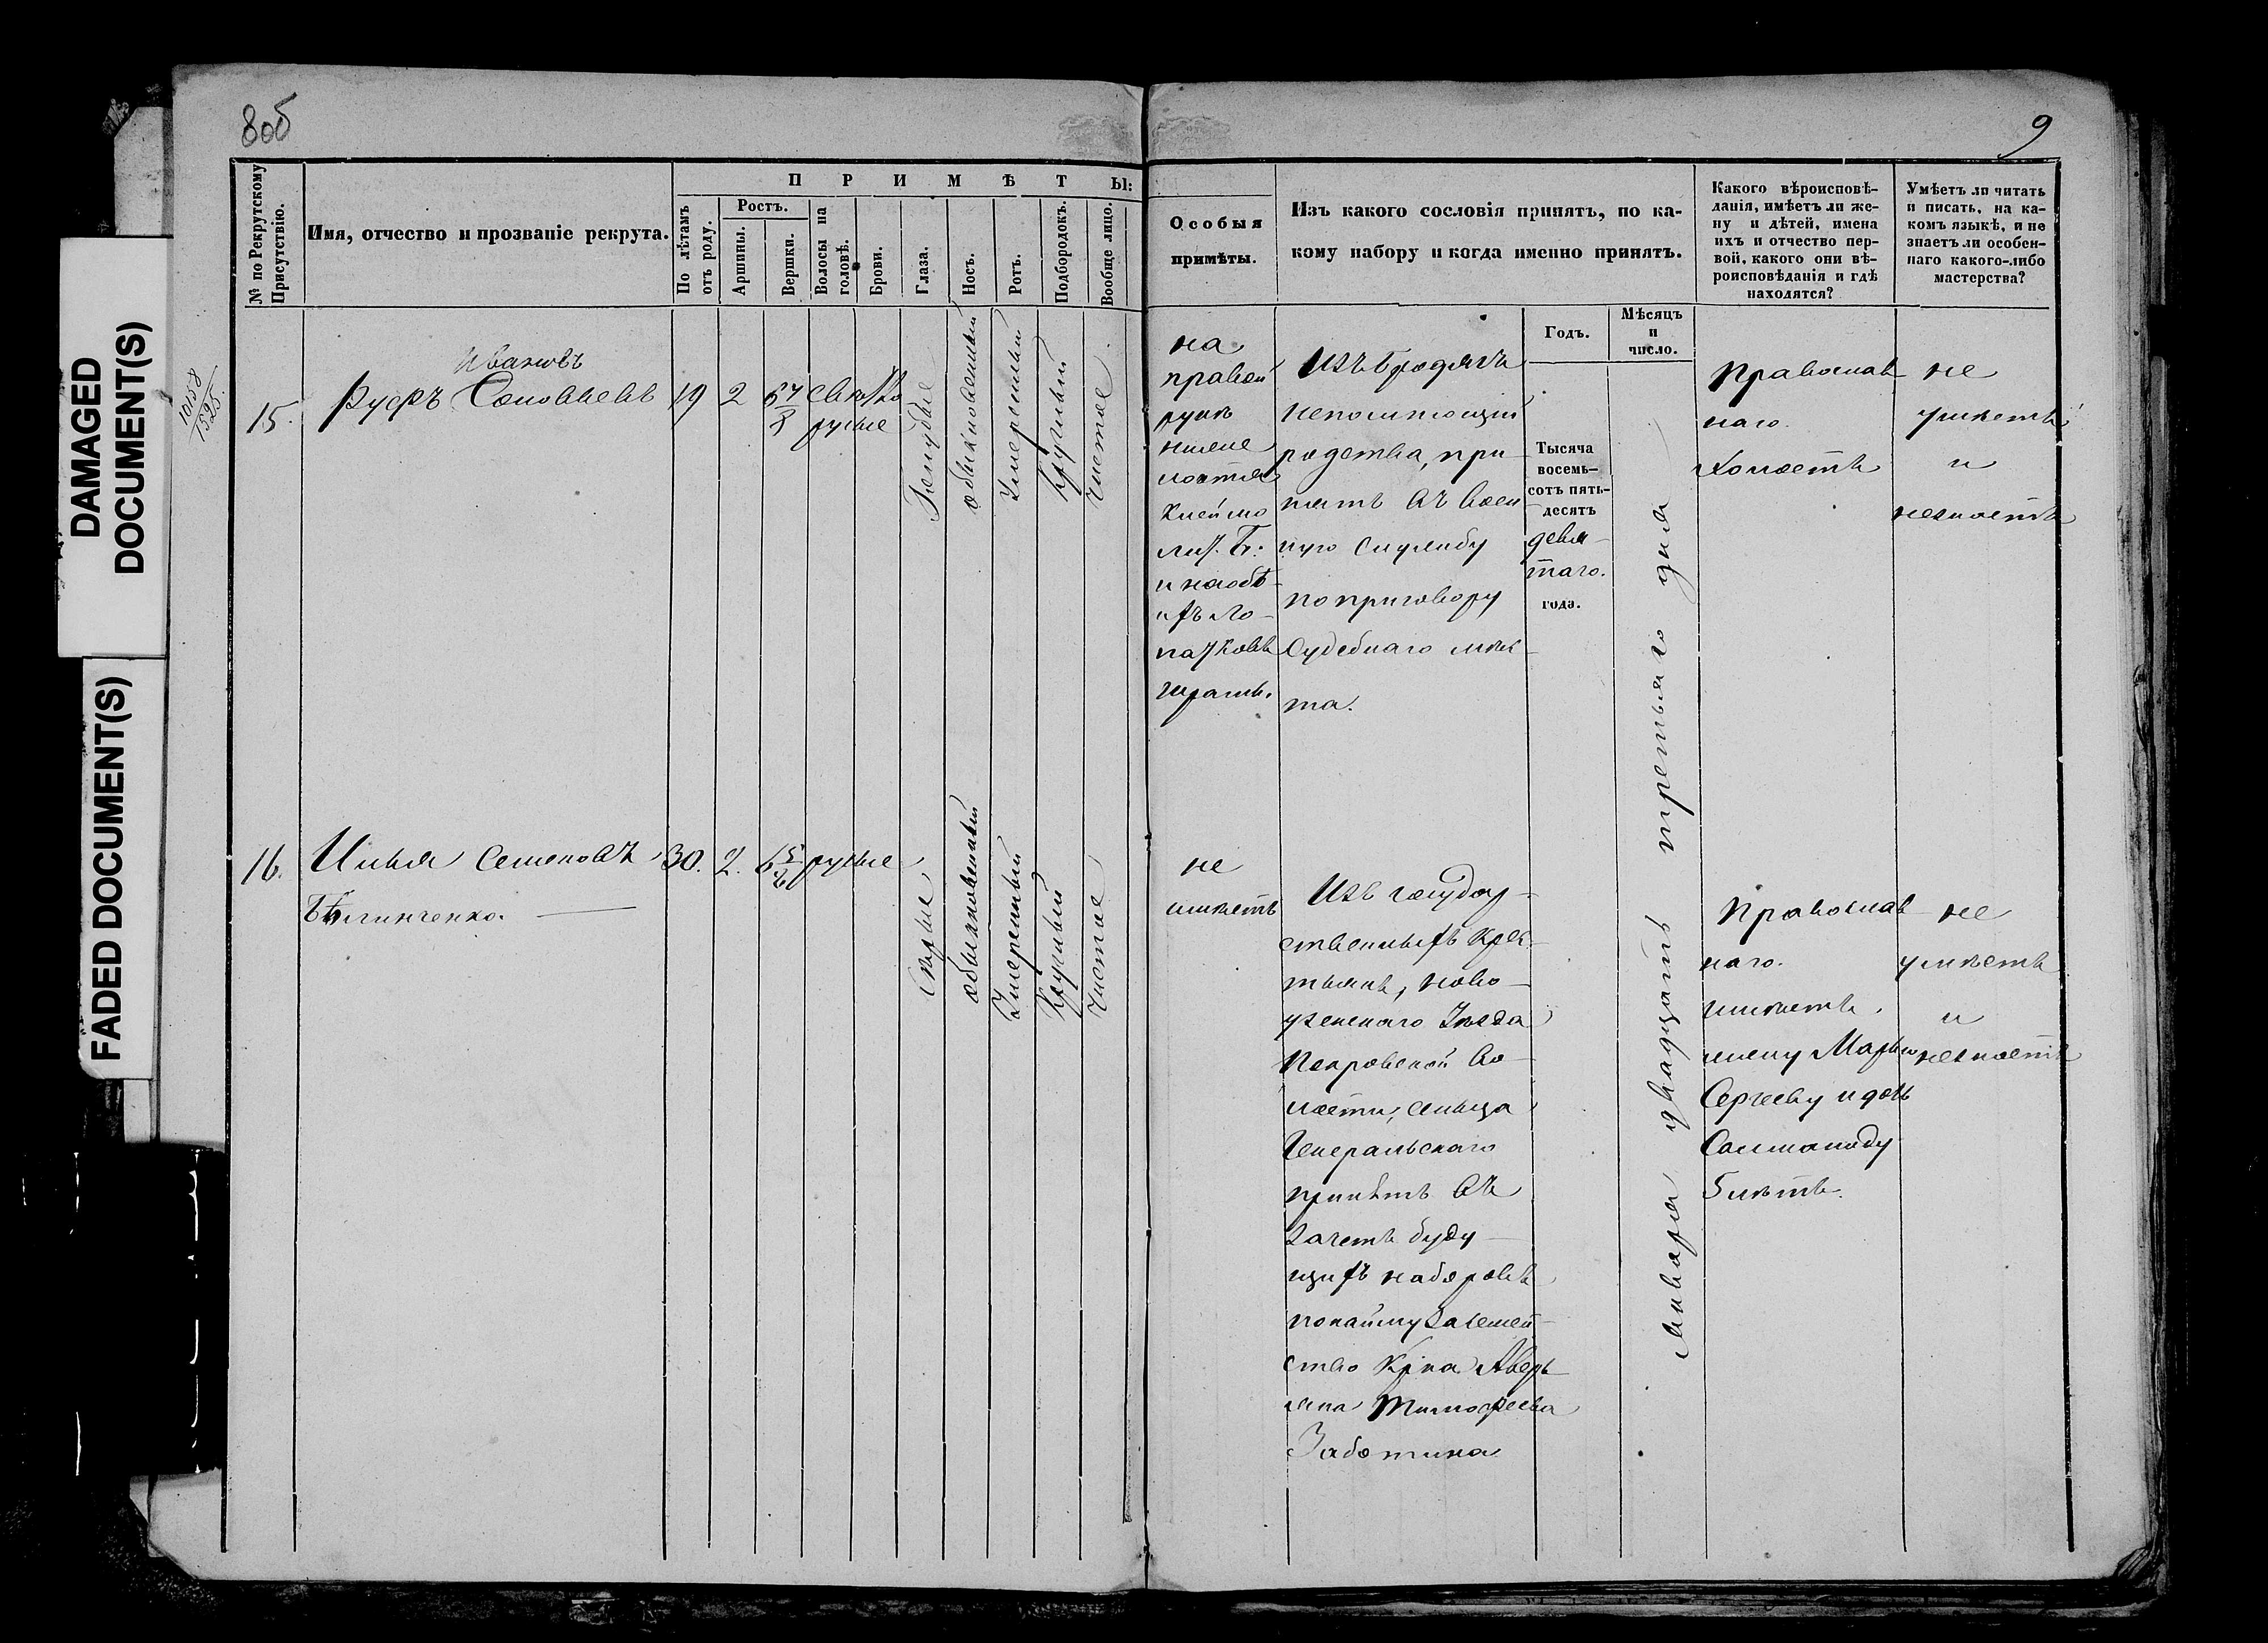 8об
9
DAMAGED
DOCUMENT(S)
FADED DOCUMENT(S)
№ по Рекрутскому
Присутствію.
Имя, отчество и прозваніе рекрута.
ПРИМѢТЫ:
По лѣтамъ
отъ роду.
Ростъ.
Аршины.
Вершки.
Волосы на
головѣ.
Брови.
Глаза.
Носъ.
Ротъ.
Подбородокъ.
Вообще лицо.
Особыя
примѣты.
Изъ какого сословія принятъ, по ка-
кому набору и когда именно принятъ.
Какого вѣроисповѣ-
данія, имѣетъ ли же-
ну и дѣтей, имена
ихъ и отчество пер-
вой, какого они вѣ-
роисповѣданія и гдѣ
находятся?
Умѣетъ ли читать
и писать, на ка-
комъ языкѣ, и не
знаетъ ли особен-
наго какого-либо
мастерства?
Годъ.
Мѣсяцъ
и
число.
1058
1525
15.
Ивановъ
Соловьевъ
19
2
6 4/8
свѣтло
русые
Голубые
обыкновенный
Умеренный
Круглый
Чистое
на
правой
рукѣ
ниже
локтя
клеймо
лит. Б:
и на обѣ-
ихъ ло-
паткахъ
Изъ бродягъ
непомнющій
родства, при-
нятъ въ воен-
ную службу
по приговору
Судебнаго мѣс-
та.
Тысяча
восемь-
сотъ пять-
десятъ
девя-
таго.
года.
Января двадцать третьяго дня
Православ-
наго.
Холостъ
не
умѣетъ
и
незнаетъ
16.
Илья Семеновъ
Бѣлинченко.
30.
2.
6 5/8
русые
Сѣрые
обыкновенный
Умеренный
Круглый
Чистое
не
имѣетъ
Изъ государ-
ственныхъ крес-
тьянъ, ново-
узенскаго Уѣзда
Покровской во-
лости, сельца
Генеральскаго
принятъ въ
зачетъ буду-
щихъ наборовъ
по найму за семей-
ство Кр-на Аверь
яна Тимофеева
Заботина
Православ-
наго.
имѣетъ
жену Марью
Сергееву и дочь
Соломониду
5 лѣтъ.
не
умѣетъ
и
незнаетъ